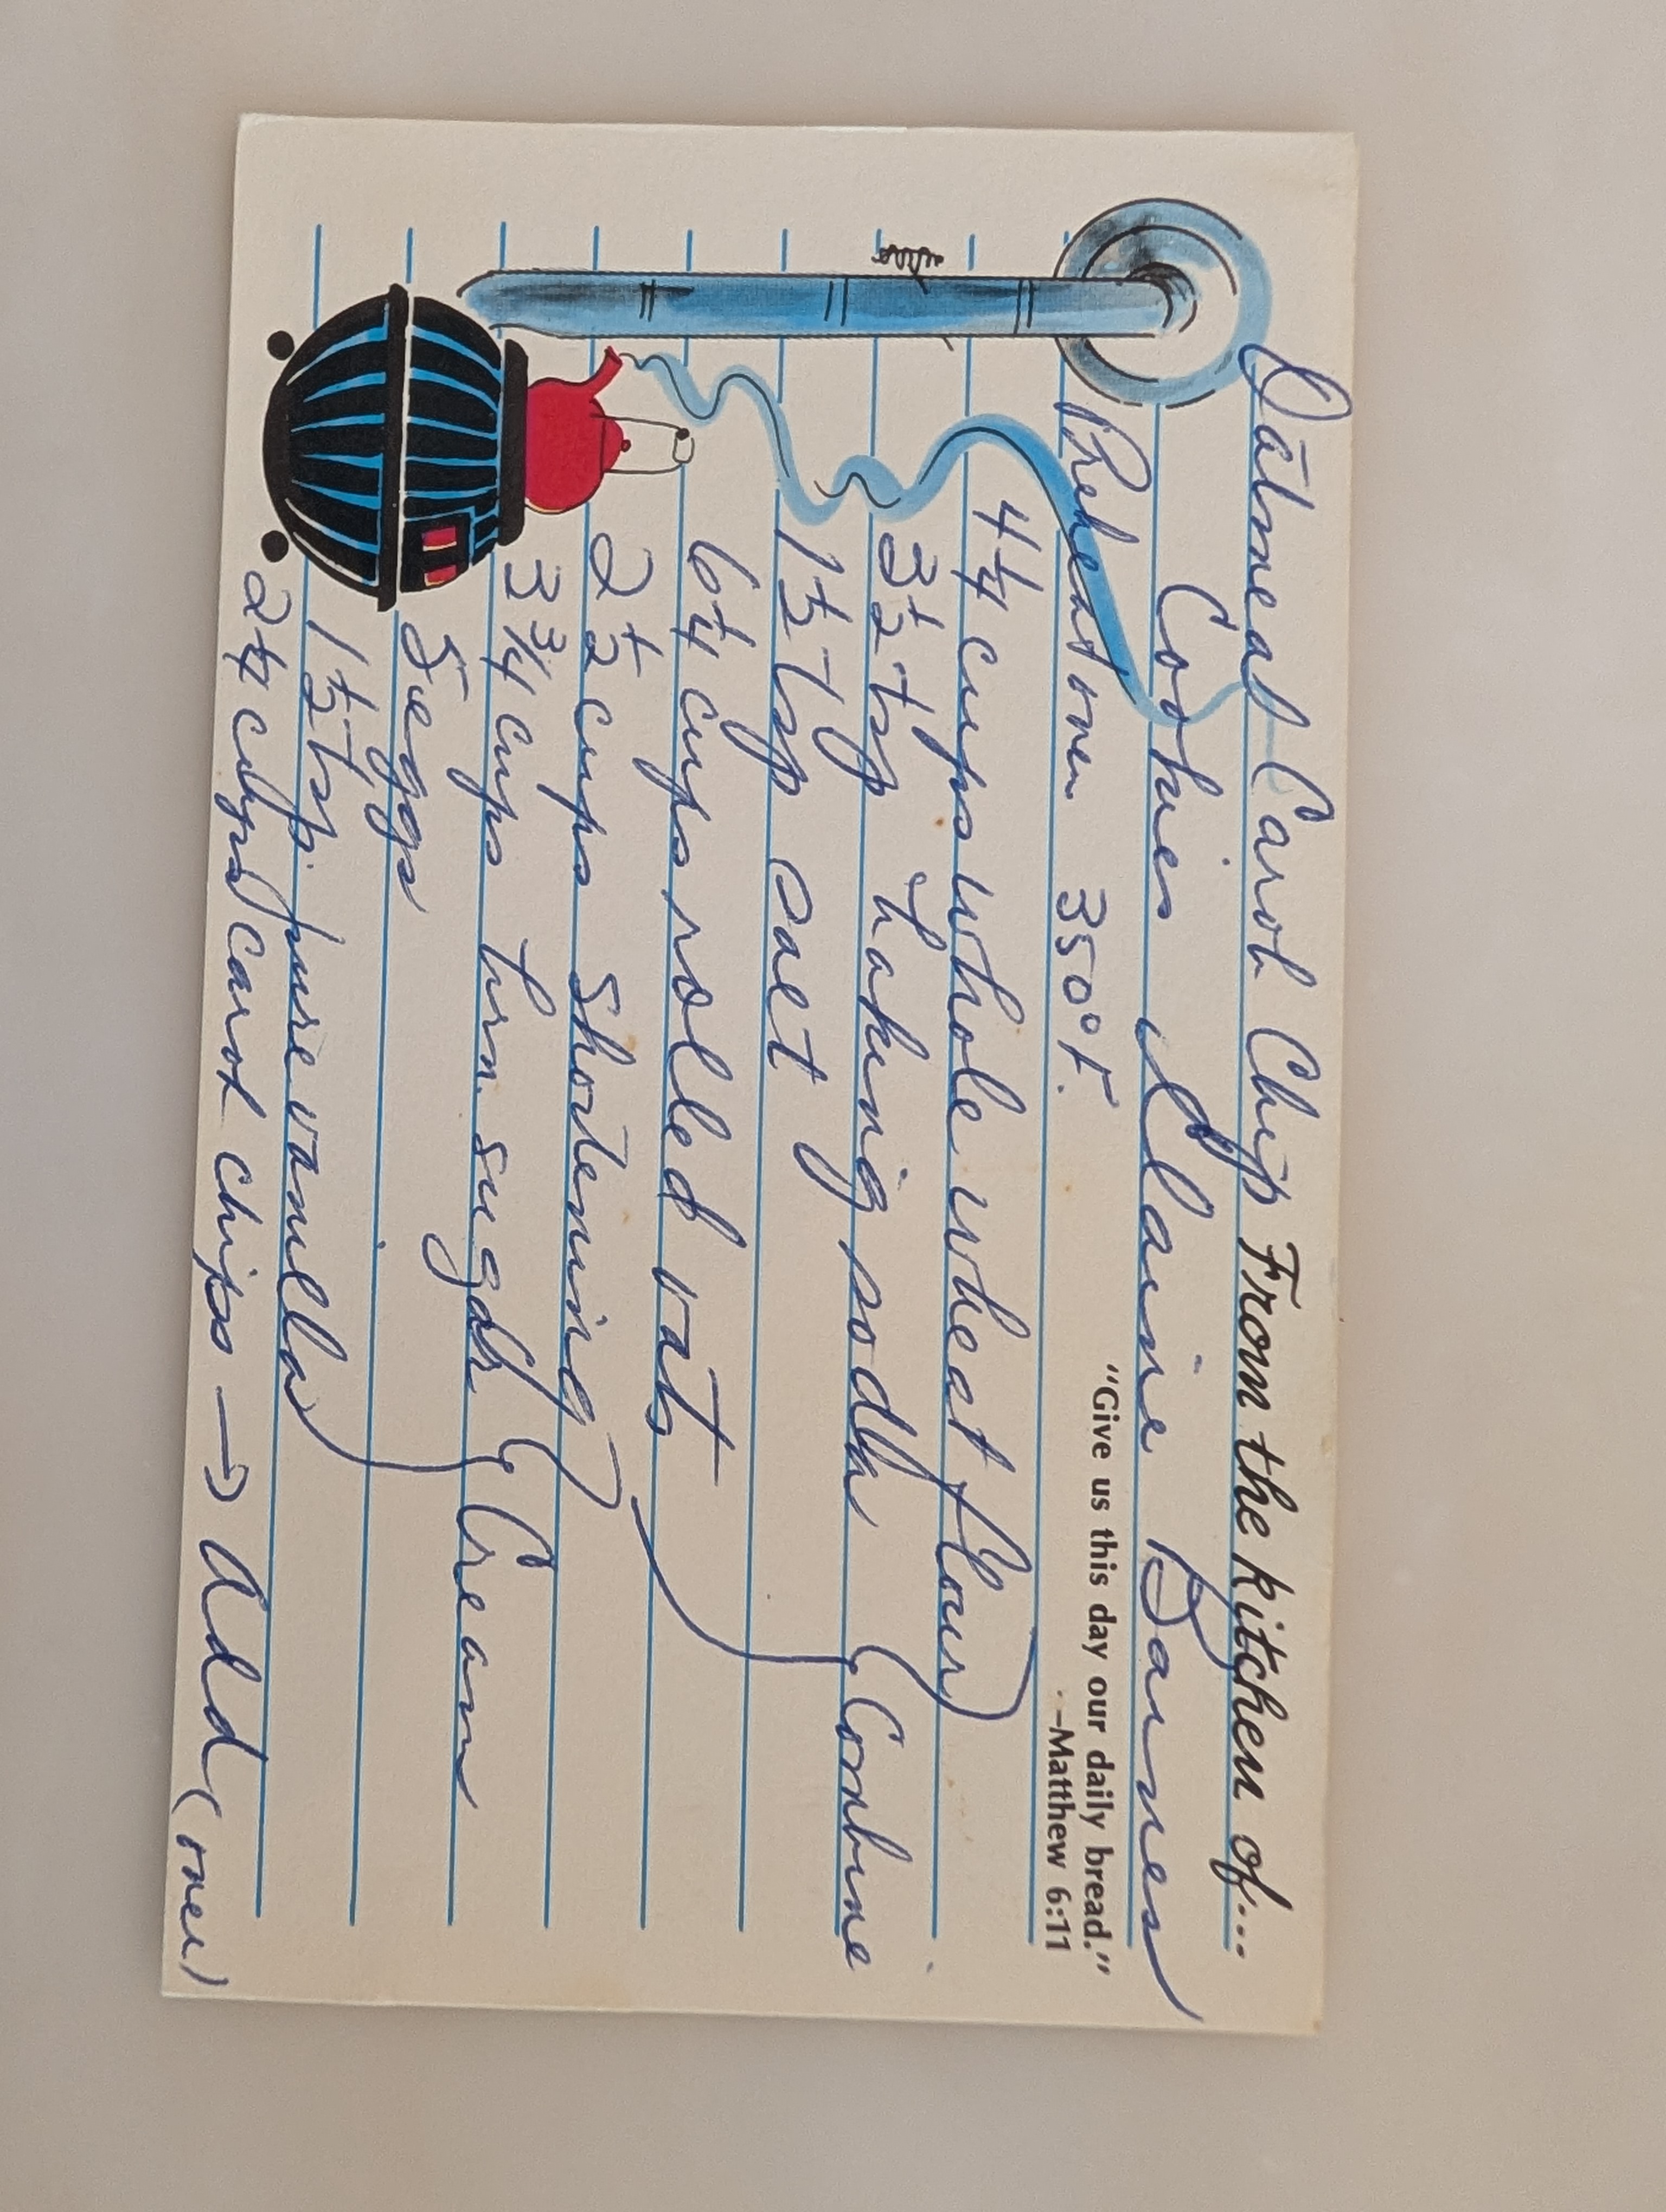 Oatmeal Carob Chip From the kitchen of...
Cookies Elaine Barnes
"Give us this day our daily bread."
Preheat oven 350°F. —Matthew 6:11
4 1/4 cups whole wheat flour
3 1/2 tsp baking soda (Combine
1 1/2 tsp salt
6 1/4 cups rolled oats
2 1/2 cups shortening
3 3/4 cups brn. sugar (Cream
5 eggs
1 1/2 tsp. pure vanilla
2 1/4 cups carob chips → Add (over)